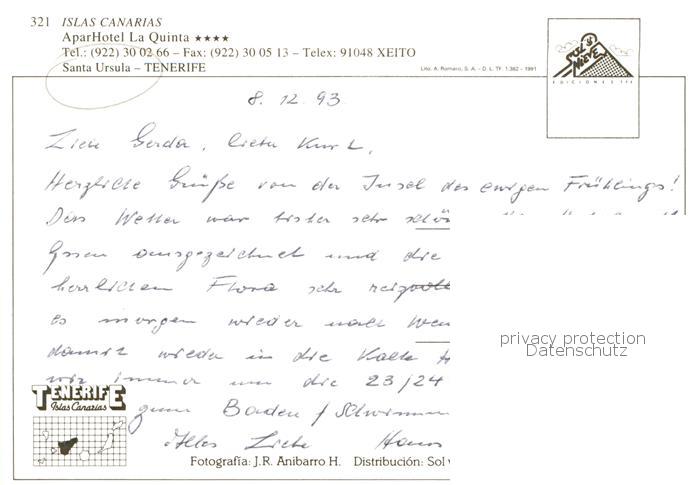 321 ISLAS CANARIAS
AparHotel La Quinta ★★★★
Tel.: (922) 30 02 66 – Fax: (922) 30 05 13 – Telex: 91048 XEITO
Santa Ursula – TENERIFE
Lito. A. Romero, S. A. - D. L. TF. 1.362 - 1991
SOL Y NIEVE
EDICIONES
8. 12. 93
Liebe Gerda, lieber Kurt,
Herzliche Grüße von der Insel des ewigen Frühlings!
Das Wetter war bisher sehr schö
Essen ausgezeichnet und die
herrlichen Flora sehr
es morgen wieder nach
damit wieder in die Kälte
wir immer um die 23/24
zum Baden / Schwimm
Alles Liebe Hans
TENERIFE
Islas Canarias
Fotografía: J.R. Anibarro H. Distribución: Sol
privacy protection
Datenschutz